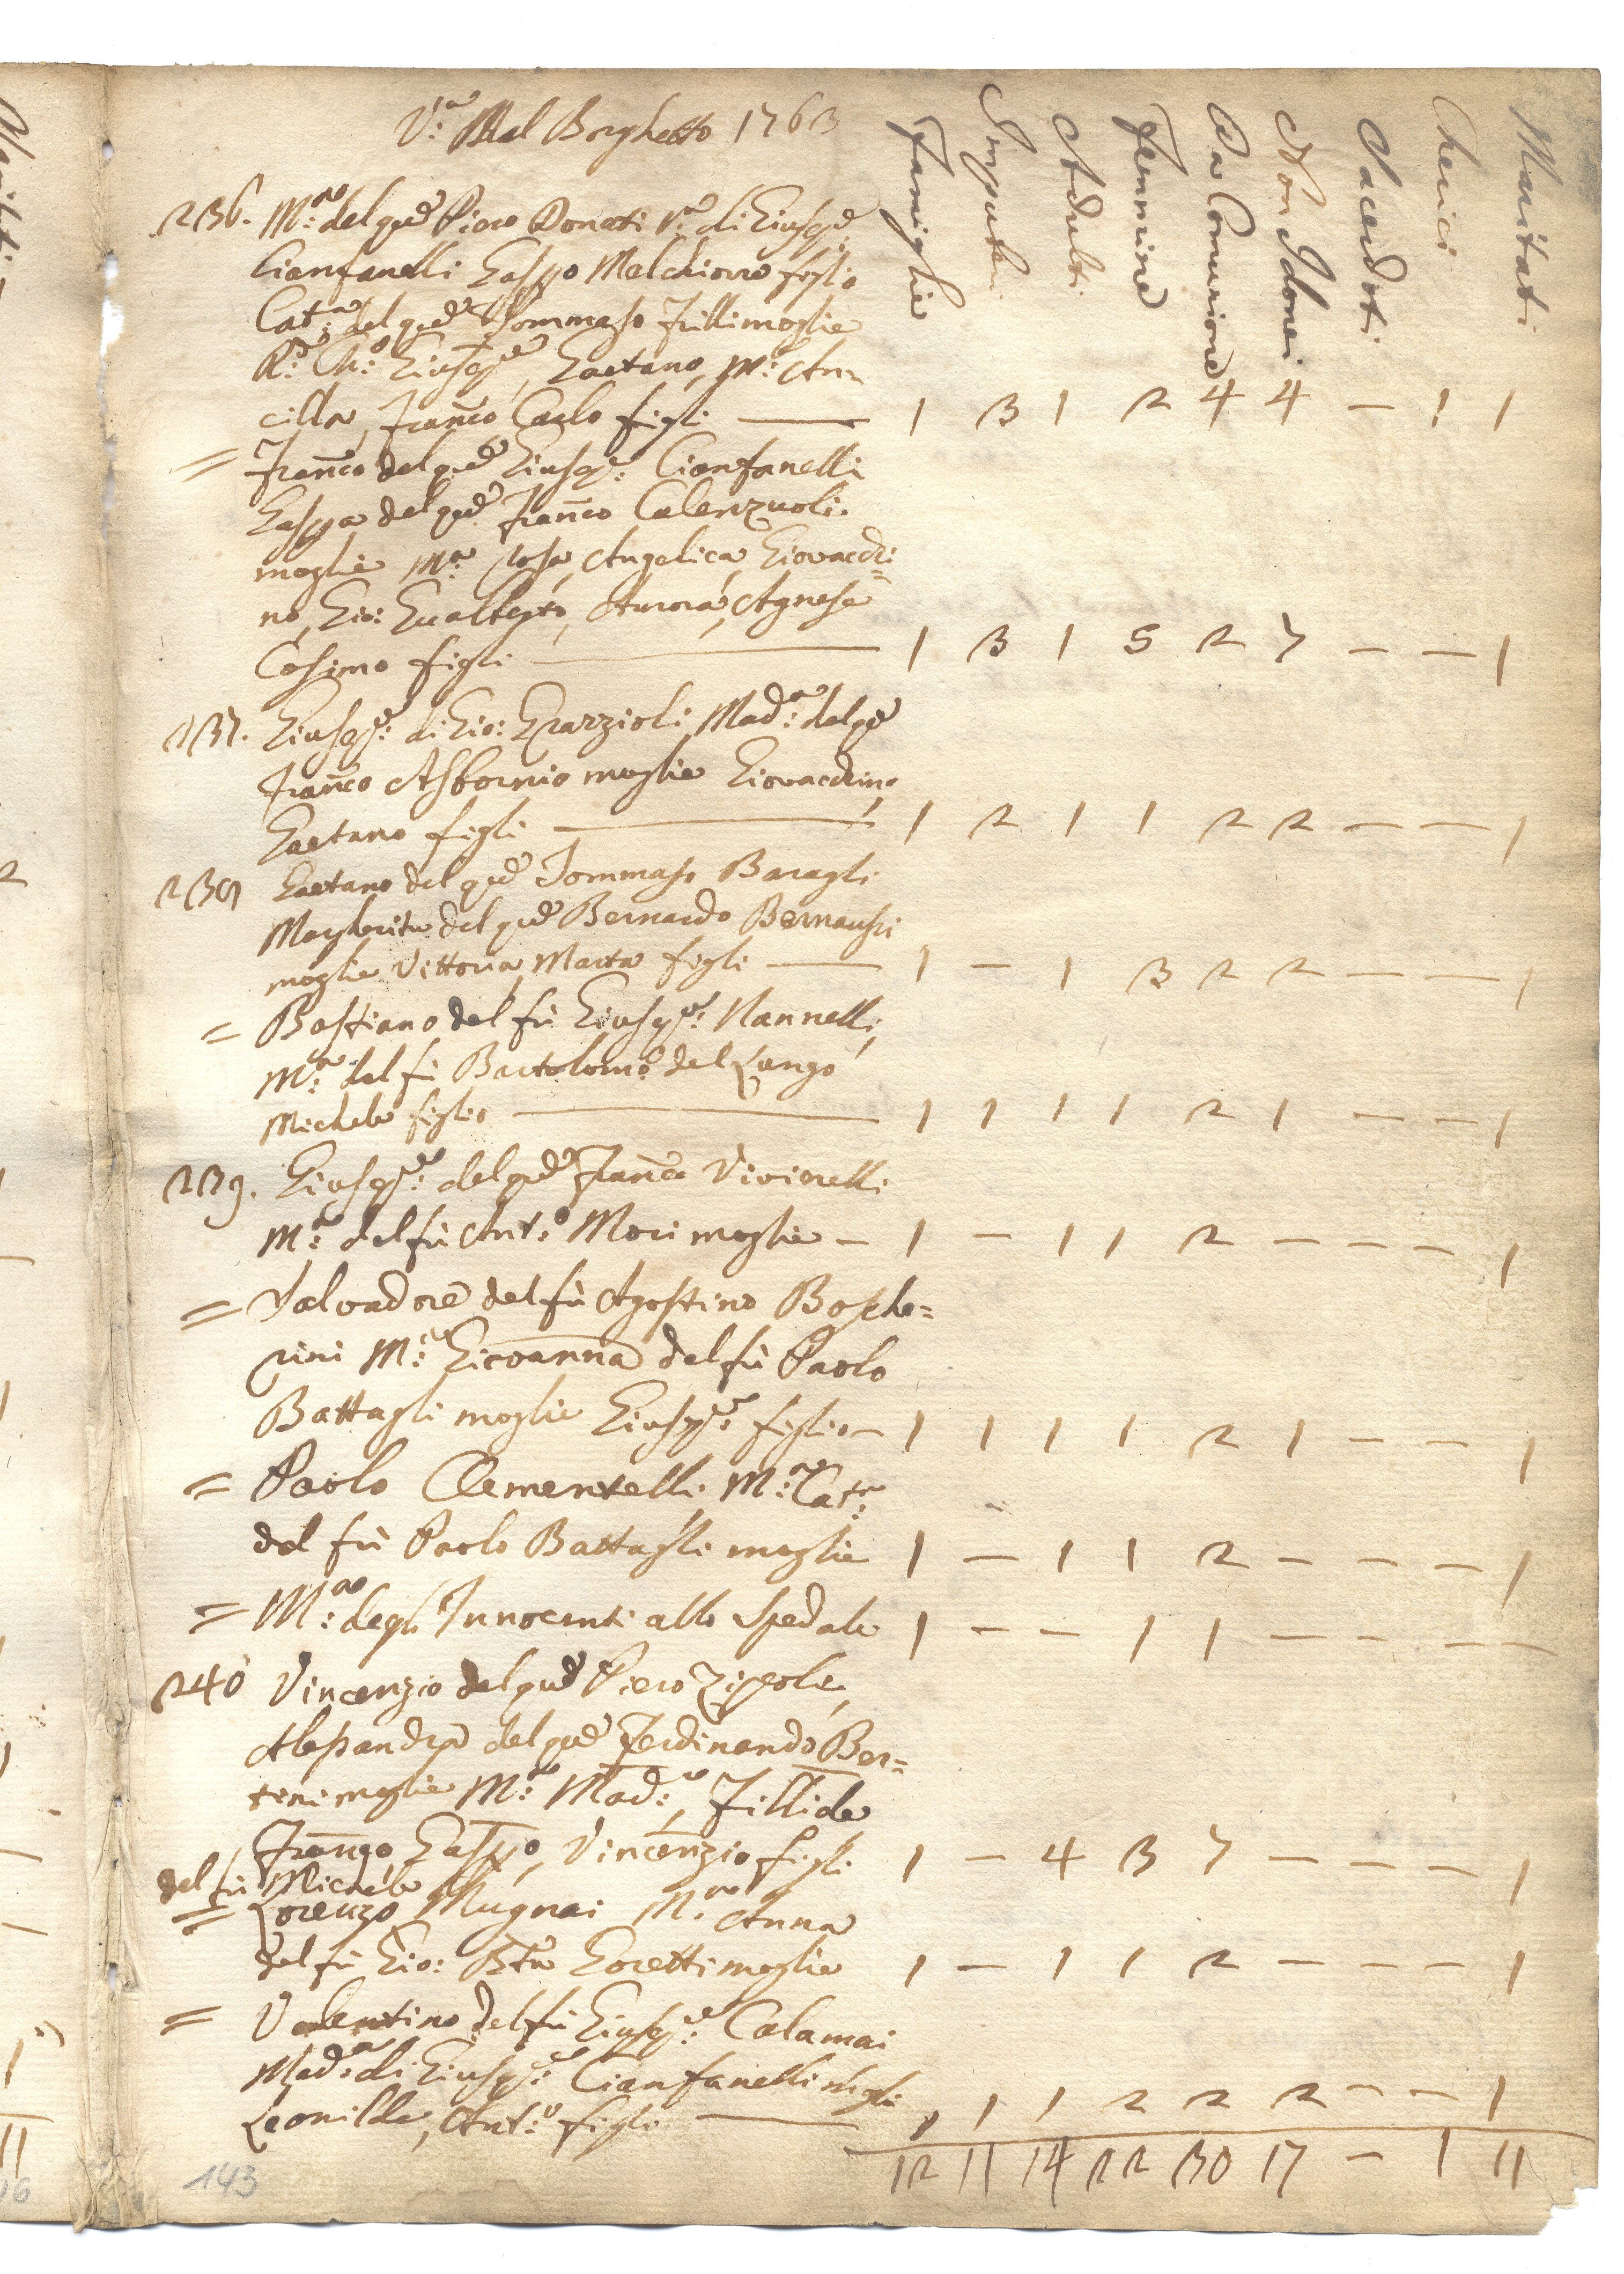 V.ª Mal Borghetto 1763
Famiglie Impuberi Adulti Femmine Da Comunione Non Idonei Sacerdoti Cherici Maritati
236. M.ª del qud Piero Donati V.ª di Giusep.e
Cianfanelli Gasp.o Melchiorre figlio
Cat.ª del qud Tommaso Trilli moglie
R.do Ch.o Giusep.e, Gaetano, M.ª An=
cilla, Franc.o Carlo figli — 1 3 1 2 4 4 — 1 1
= Franc.o del qud Giusep.e: Cianfanelli
Gasp.a del qud Franc.o Calenzuoli
moglie M.ª Rosa, Angelica, Giovacchi=
no, Gio: Gualberto, Aurora, Agnesa
Cosimo figli — 1 3 1 5 2 7 — — 1
237. Giusep.e: di Gio: Grazzioli Mad.ª del qd
Franc.o moglie Giovacchino,
Gaetano figli — 1 2 1 1 2 2 — — 1
238 Gaetano del qud Tommaso Baragli
Margherita del qud Bernardo
moglie Vittoria, Marta figli — 1 — 1 3 2 2 — — 1
= Bastiano del fù Giusep.e: Nannelli,
M.ª del fù Bartolom.o del Lungo
Michele figlio — 1 1 1 1 2 1 — — 1
239. Giusep.e: del qud Franc.o Vivirelli
M.ª del fù Ant.o Mori moglie — 1 — 1 1 2 — — — 1
= Salvadore del fù Agostino Bosche=
rini M.ª Giovanna del fù Paolo
Battagli moglie Giusep.e: figlio — 1 1 1 1 2 1 — — 1
= Paolo Clementelli M.ª Cat.ª
del fù Paolo Battagli moglie 1 — 1 1 2 — — — 1
= M.ª degl'Innocenti allo Spedale 1 — — 1 1 — — — —
240 Vincenzio del qud Piero Zipoli,
Alessandra del qud Ferdinando Ber=
tini moglie M.ª Mad.ª, Fillide
Franc.o, Gasp.o, Vincenzio figli 1 — 4 3 7 — — — 1
del fù Michele
= Lorenzo Mugnai M.ª Anna
del fù Gio: Btta Goretti moglie 1 — 1 1 2 — — — 1
= Valentino del fù Giusep.e: Calamai
Mad.ª di Giusep.e: Cianfanelli mogli
Leonilda, Ant.o figli — 1 1 1 2 2 2 — — 1
12 11 14 22 30 17 — 1 11
143